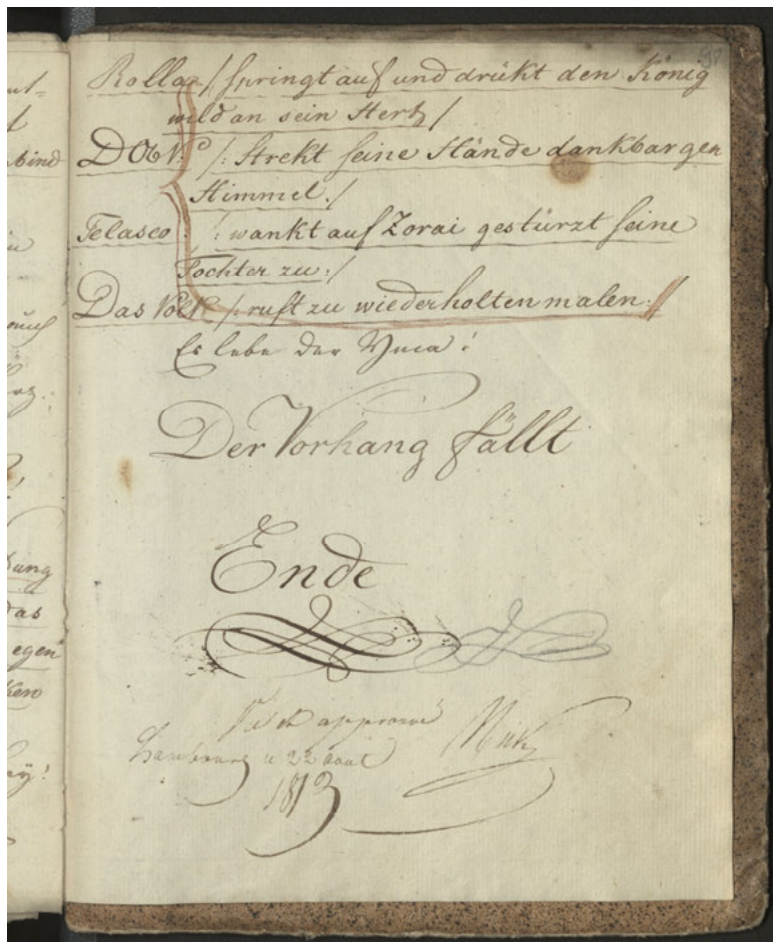 90
Rolla /: springt auf und drükt den König
wild an sein Hertz /
/: strekt seine Hände dankbar gen
Himmel. /
Telasco : /: wankt auf Zorai gestürzt seine
Tochter zu :/
Das Volk /: ruft zu wiederholten malen :/
Es lebe der Ynca !
Der Vorhang fällt
Ende
Vu et approuvé
Hambourg le 22 aout
1813
ul=
bind
auch
dung
das
egen
ken
ey!